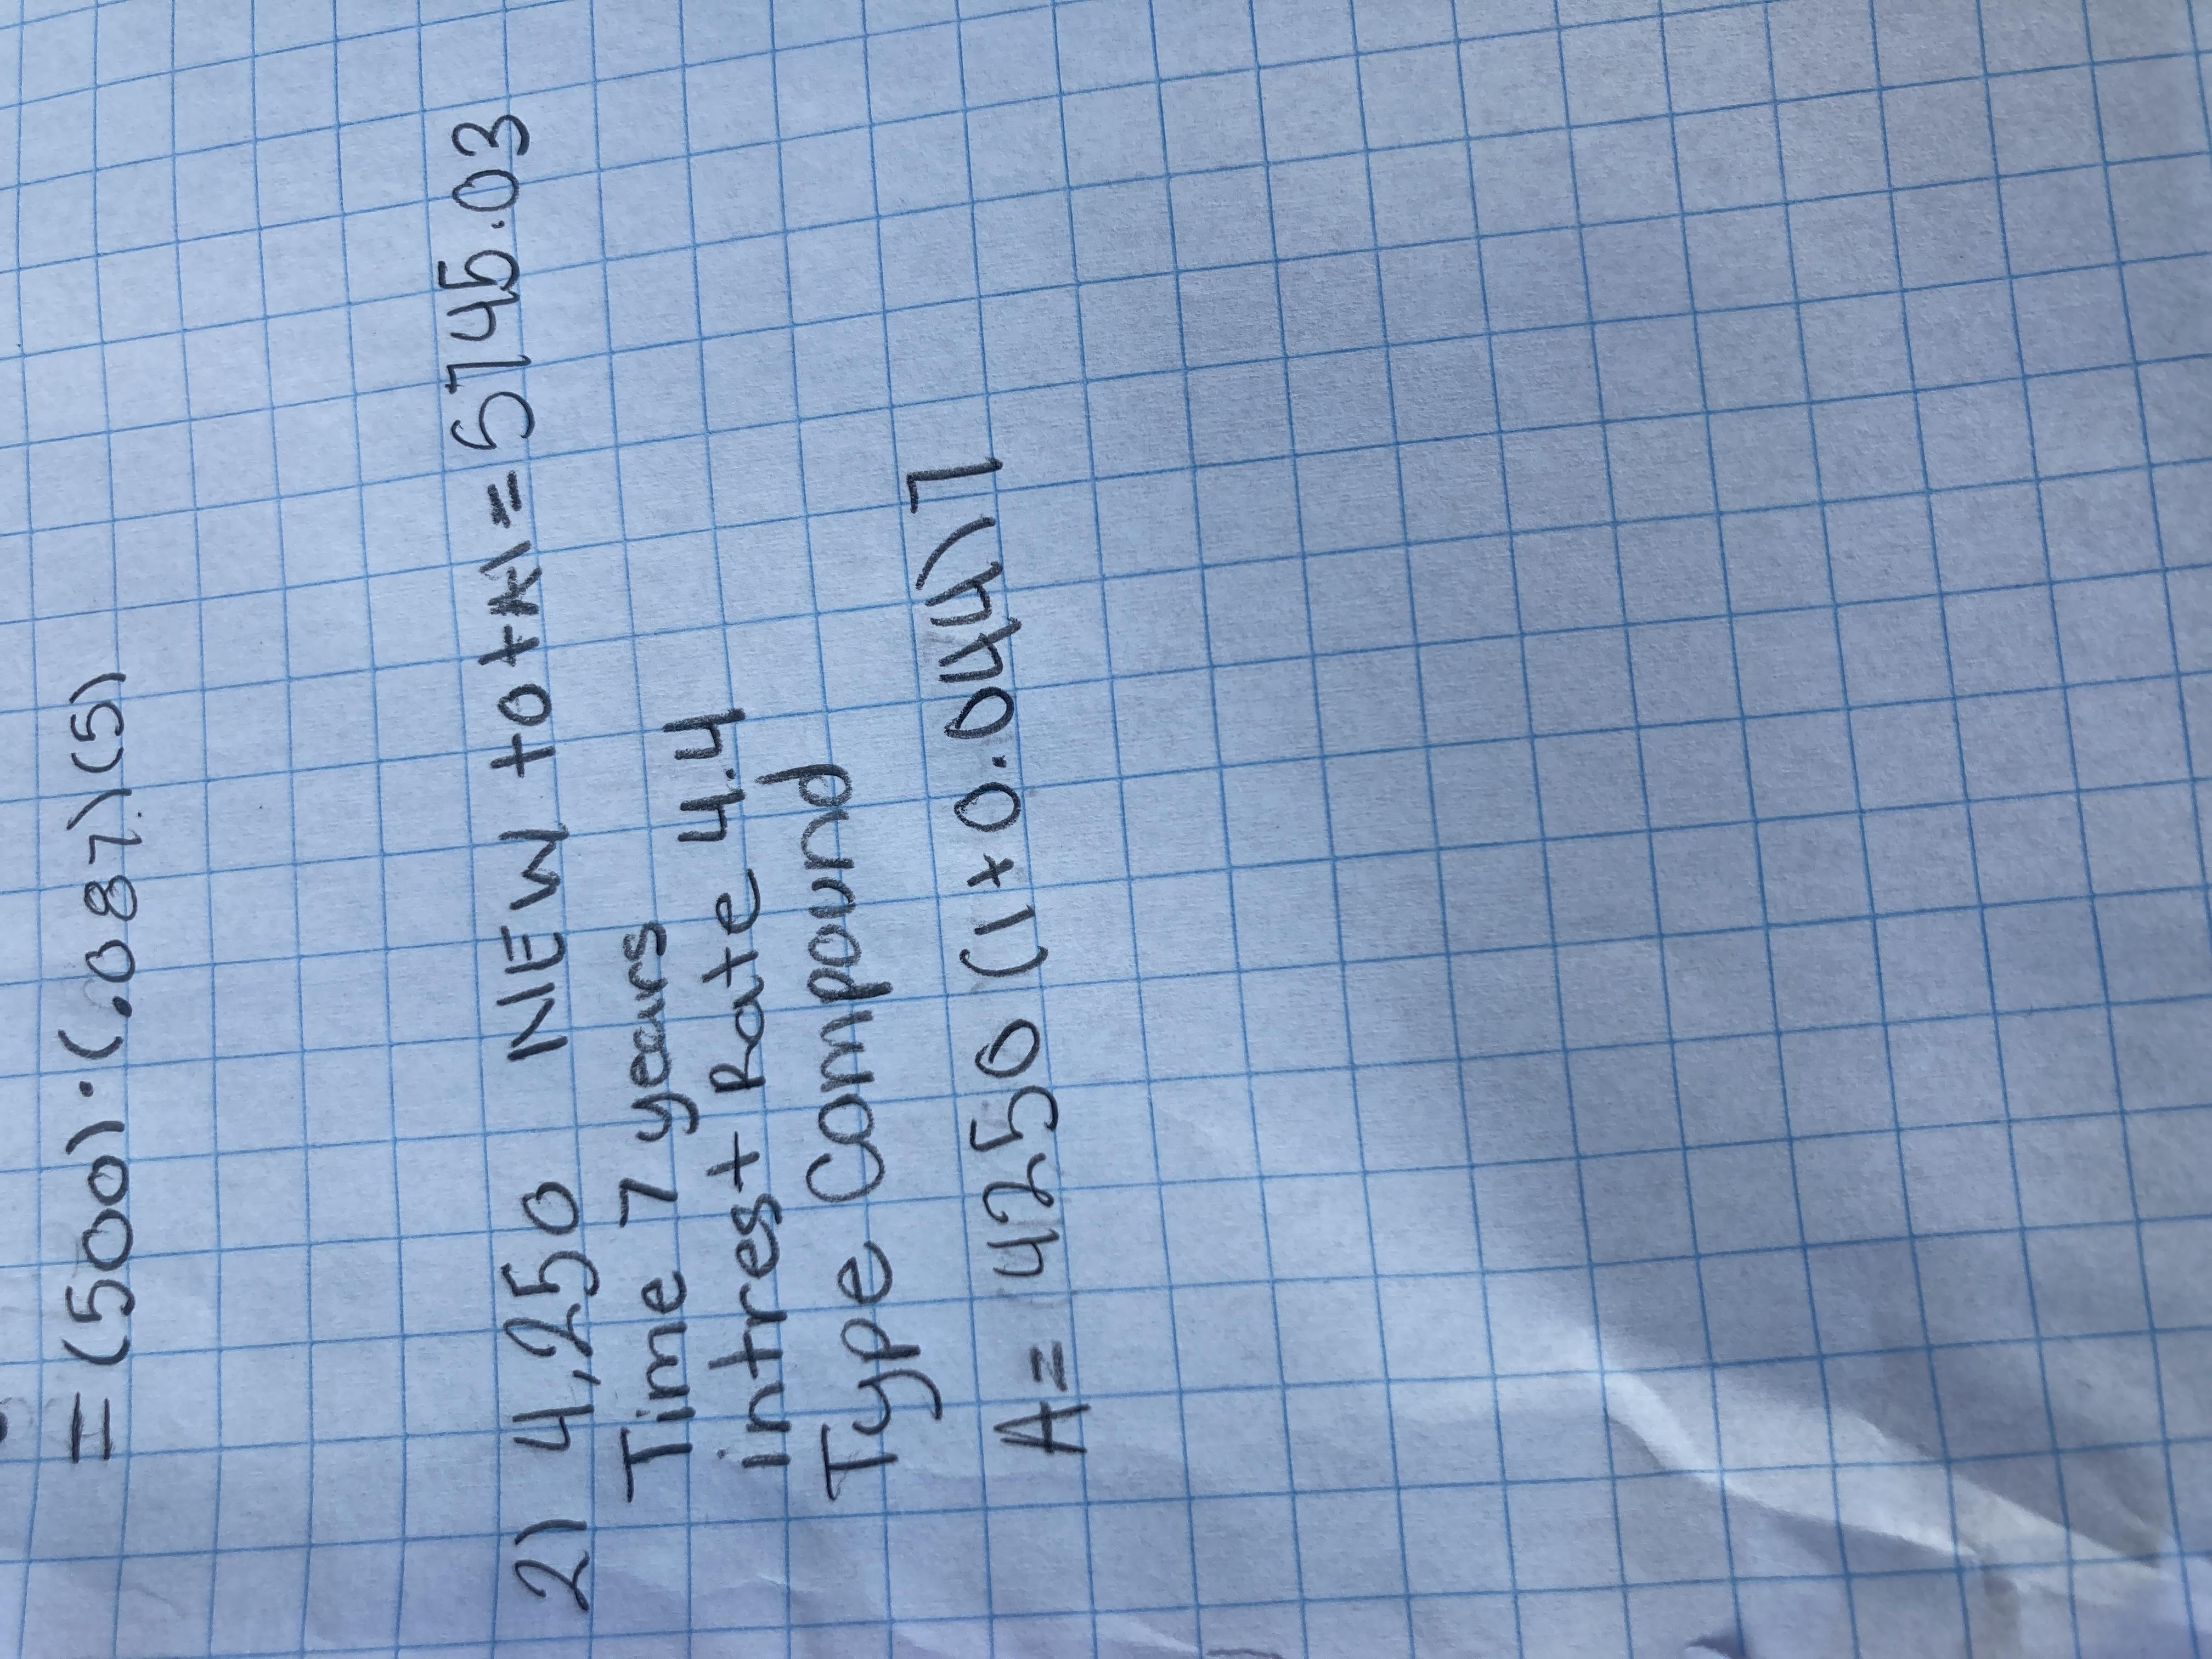 = (500) · (.087) (5)
2) 4,250 NEW total = 5745.03
Time 7 years
intrest Rate 4.4
Type Compound
A = 4250 (1+0.044)7